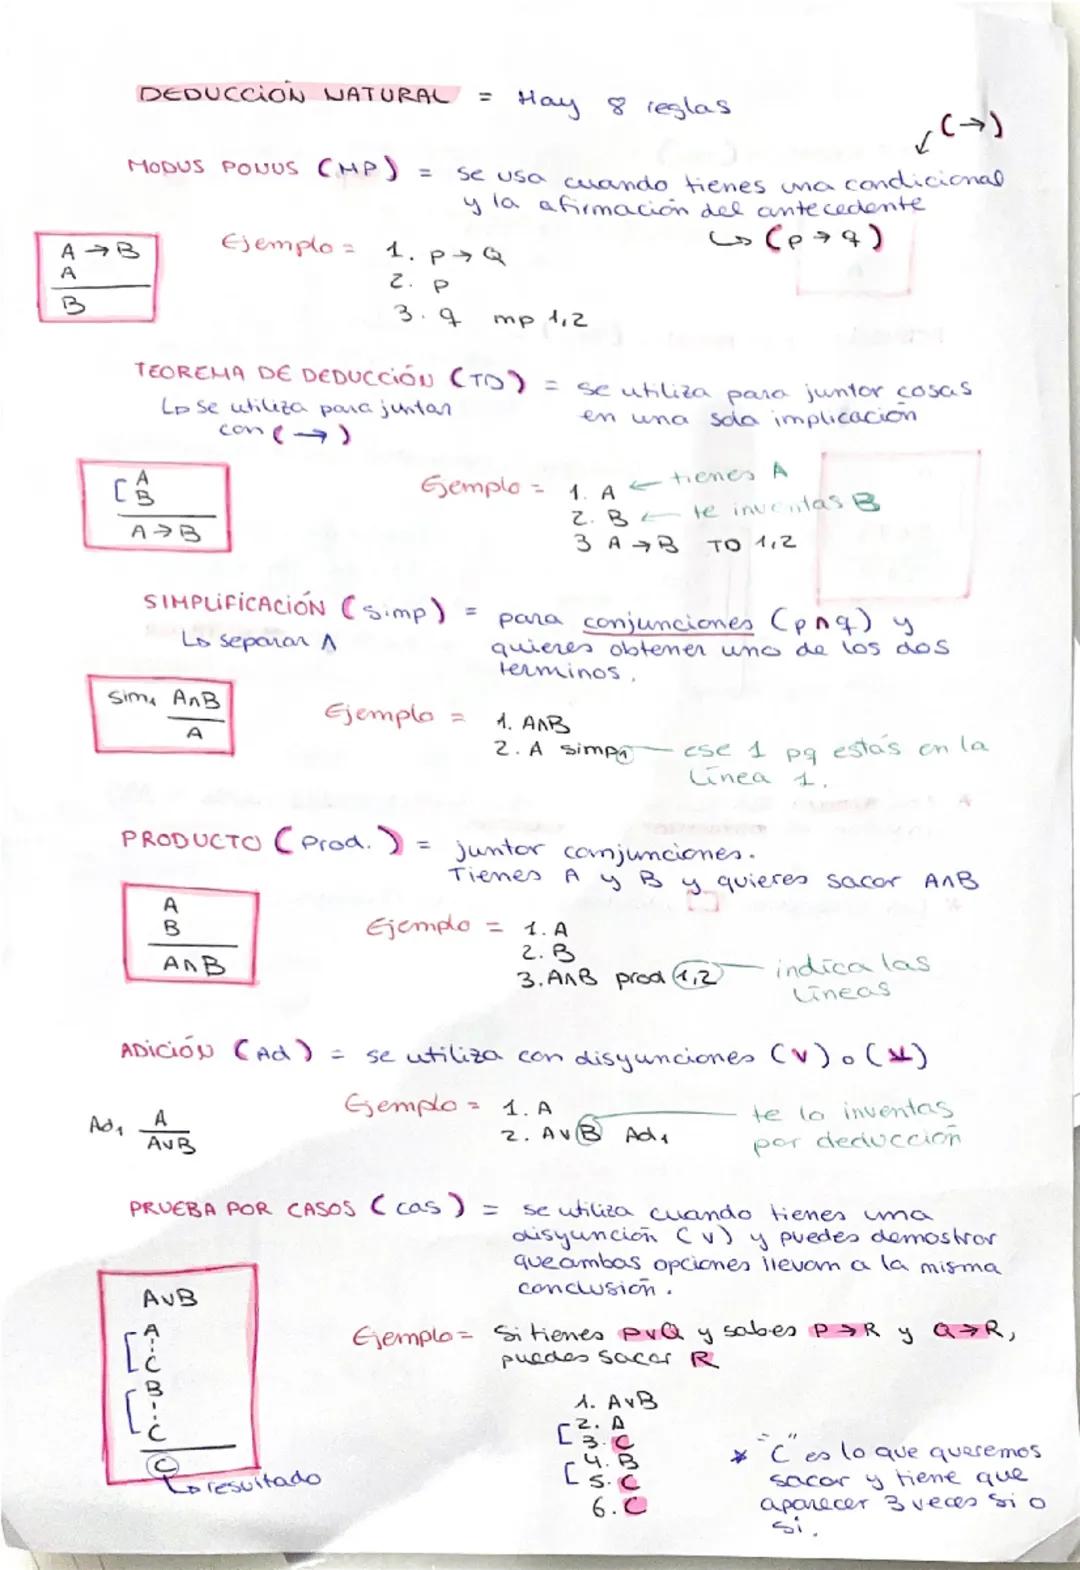 DEDUCCIÓN NATURAL = Hay 8 reglas
(→)
MODUS PONUS (MP) = se usa cuando tienes una condicional
y la afirmación del antecedente
↳ (p → q)
A → B
A
B
Ejemplo = 1. p → Q
2. p
3. q mp 1,2
TEOREMA DE DEDUCCIÓN (TD) = se utiliza para juntar cosas
en una sola implicación
↳ se utiliza para juntar
con (→)
[ A
B
A → B
Ejemplo = 1. A ← tienes A
2. B ← te inventas B
3 A → B TD 1,2
SIMPLIFICACIÓN (simp) = para conjunciones (p∧q) y
quieres obtener uno de los dos
terminos.
↳ separar ∧
Sim₁ A∧B
A
Ejemplo = 1. A∧B
2. A simp₁ ese 1 pq estás en la
línea 1.
PRODUCTO (Prod.) = juntar comjunciones.
Tienes A y B y quieres sacar A∧B
A
B
A∧B
Ejemplo = 1. A
2. B
3. A∧B prod 1,2 indica las
líneas
ADICIÓN (Ad) = se utiliza con disyunciones (∨) o (⊻)
Ad₁ A
A∨B
Ejemplo = 1. A
2. A∨B Ad₁
te lo inventas
por deducción
PRUEBA POR CASOS (cas) = se utiliza cuando tienes una
disyunción (∨) y puedes demostrar
que ambas opciones llevan a la misma
conclusión.
A∨B
[ A
C
[ B
C
C
↳ resultado
Ejemplo = Si tienes P∨Q y sabes P→R y Q→R,
puedes sacar R
1. A∨B
[ 2. A
3. C
[ 4. B
5. C
6. C
* "C" es lo que queremos
sacar y tiene que
aparecer 3 veces si o
si.